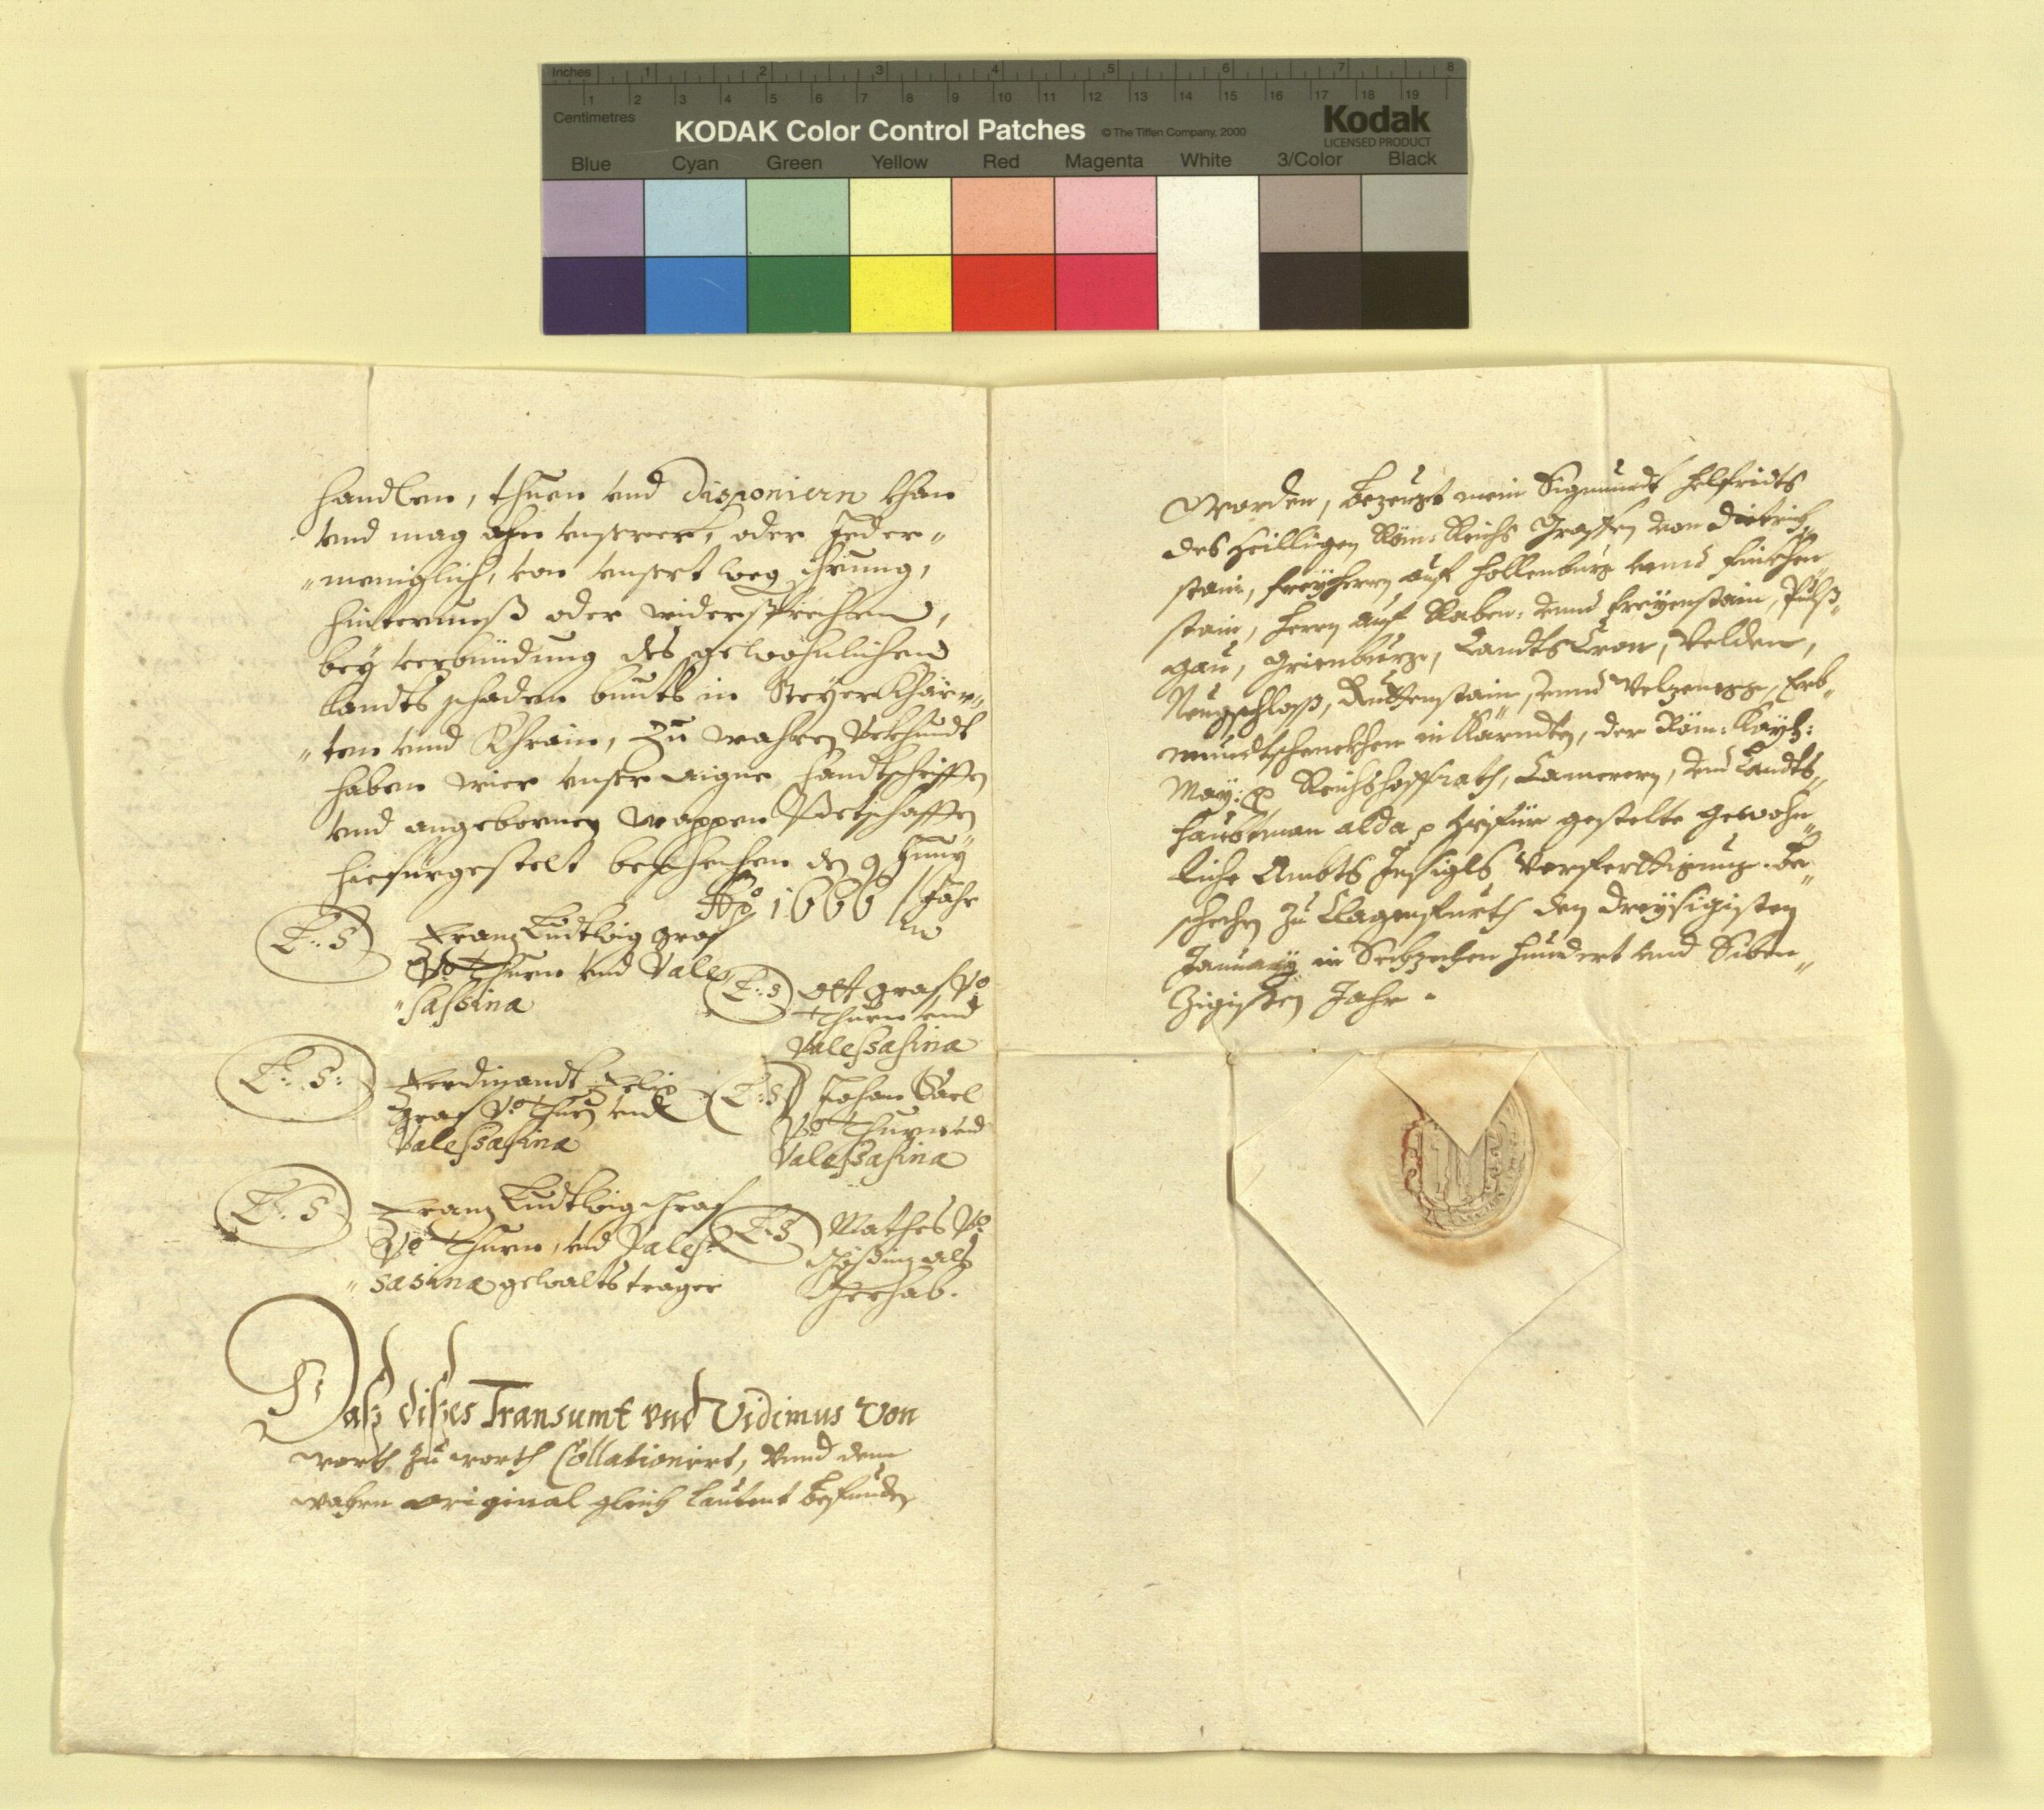 Inches 1 2 3 4 5 6 7 8
1 2 3 4 5 6 7 8 9 10 11 12 13 14 15 16 17 18 19
Centimetres
KODAK Color Control Patches © The Tiffen Company, 2000 Kodak
LICENSED PRODUCT
Blue Cyan Green Yellow Red Magenta White 3/Color Black
handlen, thuen vnd disponiern khan
vnd mag ohn vnserer, oder Jeder„
„meniglich, von vnsert weg Jrrung,
hinternuß oder widersprechen,
bey verbündung des gewöhnlichen
landts schaden bunts in Steyer Khärn„
„ten vnnd Khrain, Zu wahren Vrkhundt
haben wier vnser aigne handtschrifften
vnd angebornen wappen Petschafften
hiefürgestelt beschechen den 9 Juny
Ao 1666 Jahr
L: S Franz Ludtwig graf
Vo Thurn vnd Vale
„sassina
L: S Ott graf Vo
Thurn vnd
Valessasina
L: S: Ferdinandt Felix
graf Vo Thurn vnd
Valessasina
L: S Johan Carl
Vo Thurn vnd
Valessasina
L: S Franz Ludtwig Graf
Vo Thurn, vnd Vales„
„sasina gewaltstrager
L: S Mathes Vo
als
Gerhab.
Daß dißes Transumt vnd Vidimus Von
worth zu worth Collationiert, Vnnd dem
wahren original gleich lautent befunden
Worden, bezeugt mein Sigmundt Helfridts
des heilligen Röm: Reichs Graffen von Dietrich„
stain, freyherrn auf Hollenburg vnnd Finkhen„
stain, herrn auf Raben: vnnd Freyenstain, Pulß„
gau, Grienburg, Landts Cron, Velden,
Neugschloss, Ruttenstain, vnnd Velzenegg, Erb„
mundtschenckhen in Kärndten, der Röm: Kayß:
May: p Reichshoffrath, Camerern, vnd Landts„
haubtman alda p hiefür gestelte gewohn„
liche Ambts Insigls Verferttigung. Be„
schechen zu Clagenfurth den dreyssigisten
January in Sechzechen hundert vnd Siben„
zigisten Jahr.